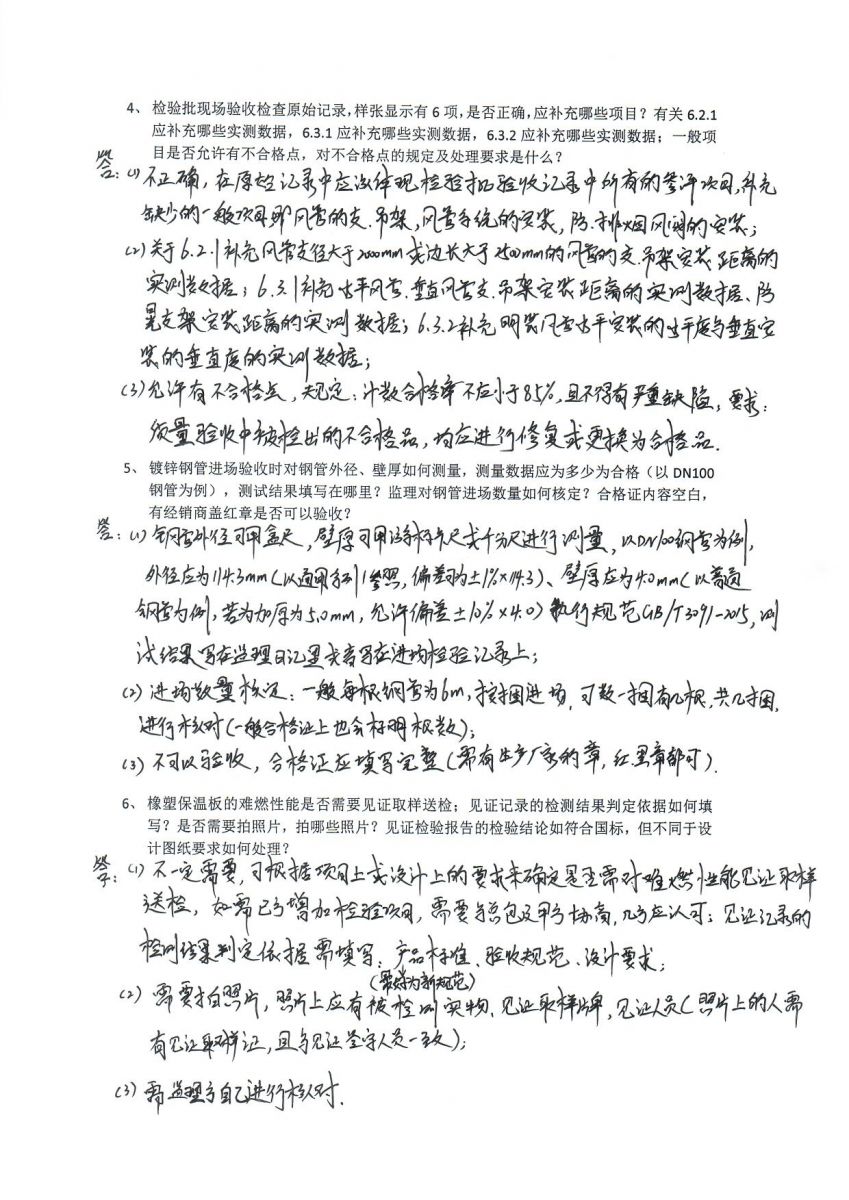 4、 检验批现场验收检查原始记录，样张显示有 6 项，是否正确，应补充哪些项目？有关 6.2.1
应补充哪些实测数据，6.3.1 应补充哪些实测数据，6.3.2 应补充哪些实测数据；一般项
目是否允许有不合格点，对不合格点的规定及处理要求是什么？
答：(1) 不正确，在原始记录中应该体现检验批验收记录中所有的参评项目，补充
缺少的一般项目即风管的支.吊架，风管系统的安装，防.排烟风阀的安装；
(2) 关于6.2.1补充风管支径大于2000mm或边长大于2500mm的风管的支.吊架安装距离的
实测数据；6.3.1补充水平风管.垂直风管支.吊架安装距离的实测数据、防
晃支架安装距离的实测数据；6.3.2补充明装风管水平安装的水平度与垂直安
装的垂直度的实测数据；
(3) 允许有不合格点，规定：计数合格率不应小于85%，且不得有严重缺陷，要求：
质量验收中被检出的不合格品，均应进行修复或更换为合格品．
5、 镀锌钢管进场验收时对钢管外径、壁厚如何测量，测量数据应为多少为合格（以 DN100
钢管为例），测试结果填写在哪里？监理对钢管进场数量如何核定？合格证内容空白，
有经销商盖红章是否可以验收？
答：(1) 钢管外径可用盒尺，壁厚可用游标卡尺或千分尺进行测量，以DN100钢管为例，
外径应为114.3mm（以通用系列1参照，偏差为±1%×114.3）、壁厚应为4.0mm（以普通
钢管为例，若为加厚为5.0mm，允许偏差±10%×4.0）执行规范GB/T3091-2015，测
试结果写在监理日记里或者写在进场检验记录上；
(2) 进场数量核定：一般每根钢管为6m，按捆进场，可数一捆有几根，共几捆，
进行核对（一般合格证上也会标明根数）；
(3) 不可以验收，合格证应填写完整（需有生产厂家的章，红黑章都可）．
6、 橡塑保温板的难燃性能是否需要见证取样送检；见证记录的检测结果判定依据如何填
写？是否需要拍照片，拍哪些照片？见证检验报告的检验结论如符合国标，但不同于设
计图纸要求如何处理？
答：(1) 不一定需要，可根据项目上或设计上的要求来确定是否需对难燃性能见证取样
送检，如需已方增加检验项目，需要与总包及甲方协商，几方应认可；见证记录的
检测结果判定依据需填写：产品标准、验收规范、设计要求；
（需择为新规范）
(2) 需要拍照片，照片上应有被检测实物、见证取样牌，见证人员（照片上的人需
有见证取样证，且与见证签字人员一致）；
(3) 需监理方自己进行核对．